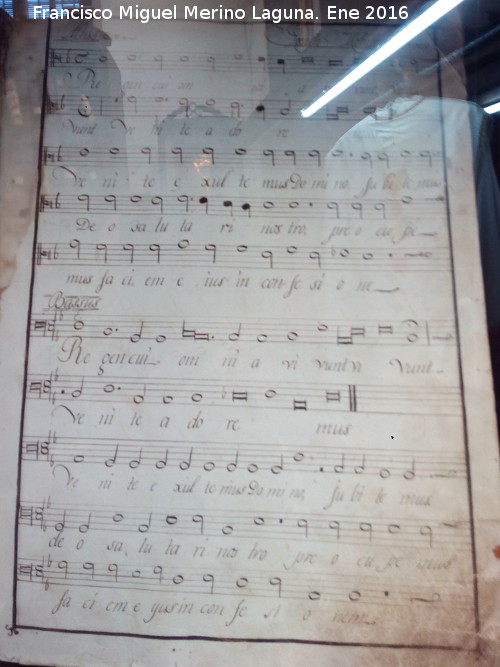 Francisco Miguel Merino Laguna. Ene 2016
Re gem cui om
vunt Ve ni te a do re
Ve ni te e xul te mus Do mi no, ju bi le mus
De o sa lu ta ri nos tro, pre o cu pe
mus fa ci em e ius in con fe si o ne
Bajus
Re gem cui om ni a vi vunt vi vunt
Ve ni te a do re mus
Ve ni te e xul te mus Do mi no, ju bi te mus
de o sa lu ta ri nos tro pre o cu pe mus
fa ci em e yus in con fe si o nem